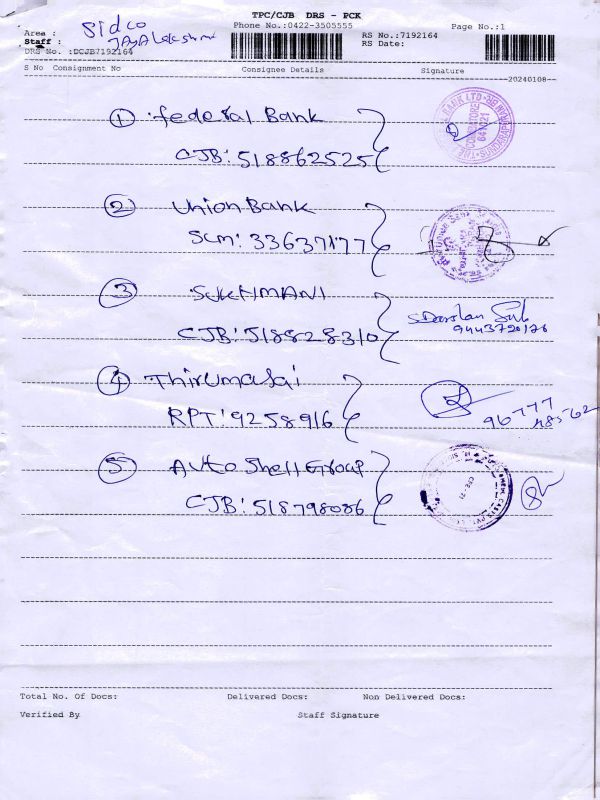 TPC/CJB DRS - PCK
Phone No.:0422-3505555
Page No.:1
Area : Sidco
Staff : JAYA Lakshmi
RS No.:7192164
RS Date:
DRS No. :DCJB7192164
S No Consignment No Consignee Details Signature
20240108
① federal Bank
CJB: 518862525
② Union Bank
SCM: 33637177
③ SUKHMANI
CJB: 518828310
9443720176
④ Thirumalai
RPT: 9258916
96777
⑤ Auto Shell Group
CJB: 518798086
Total No. Of Docs: Delivered Docs: Non Delivered Docs:
Verified By Staff Signature